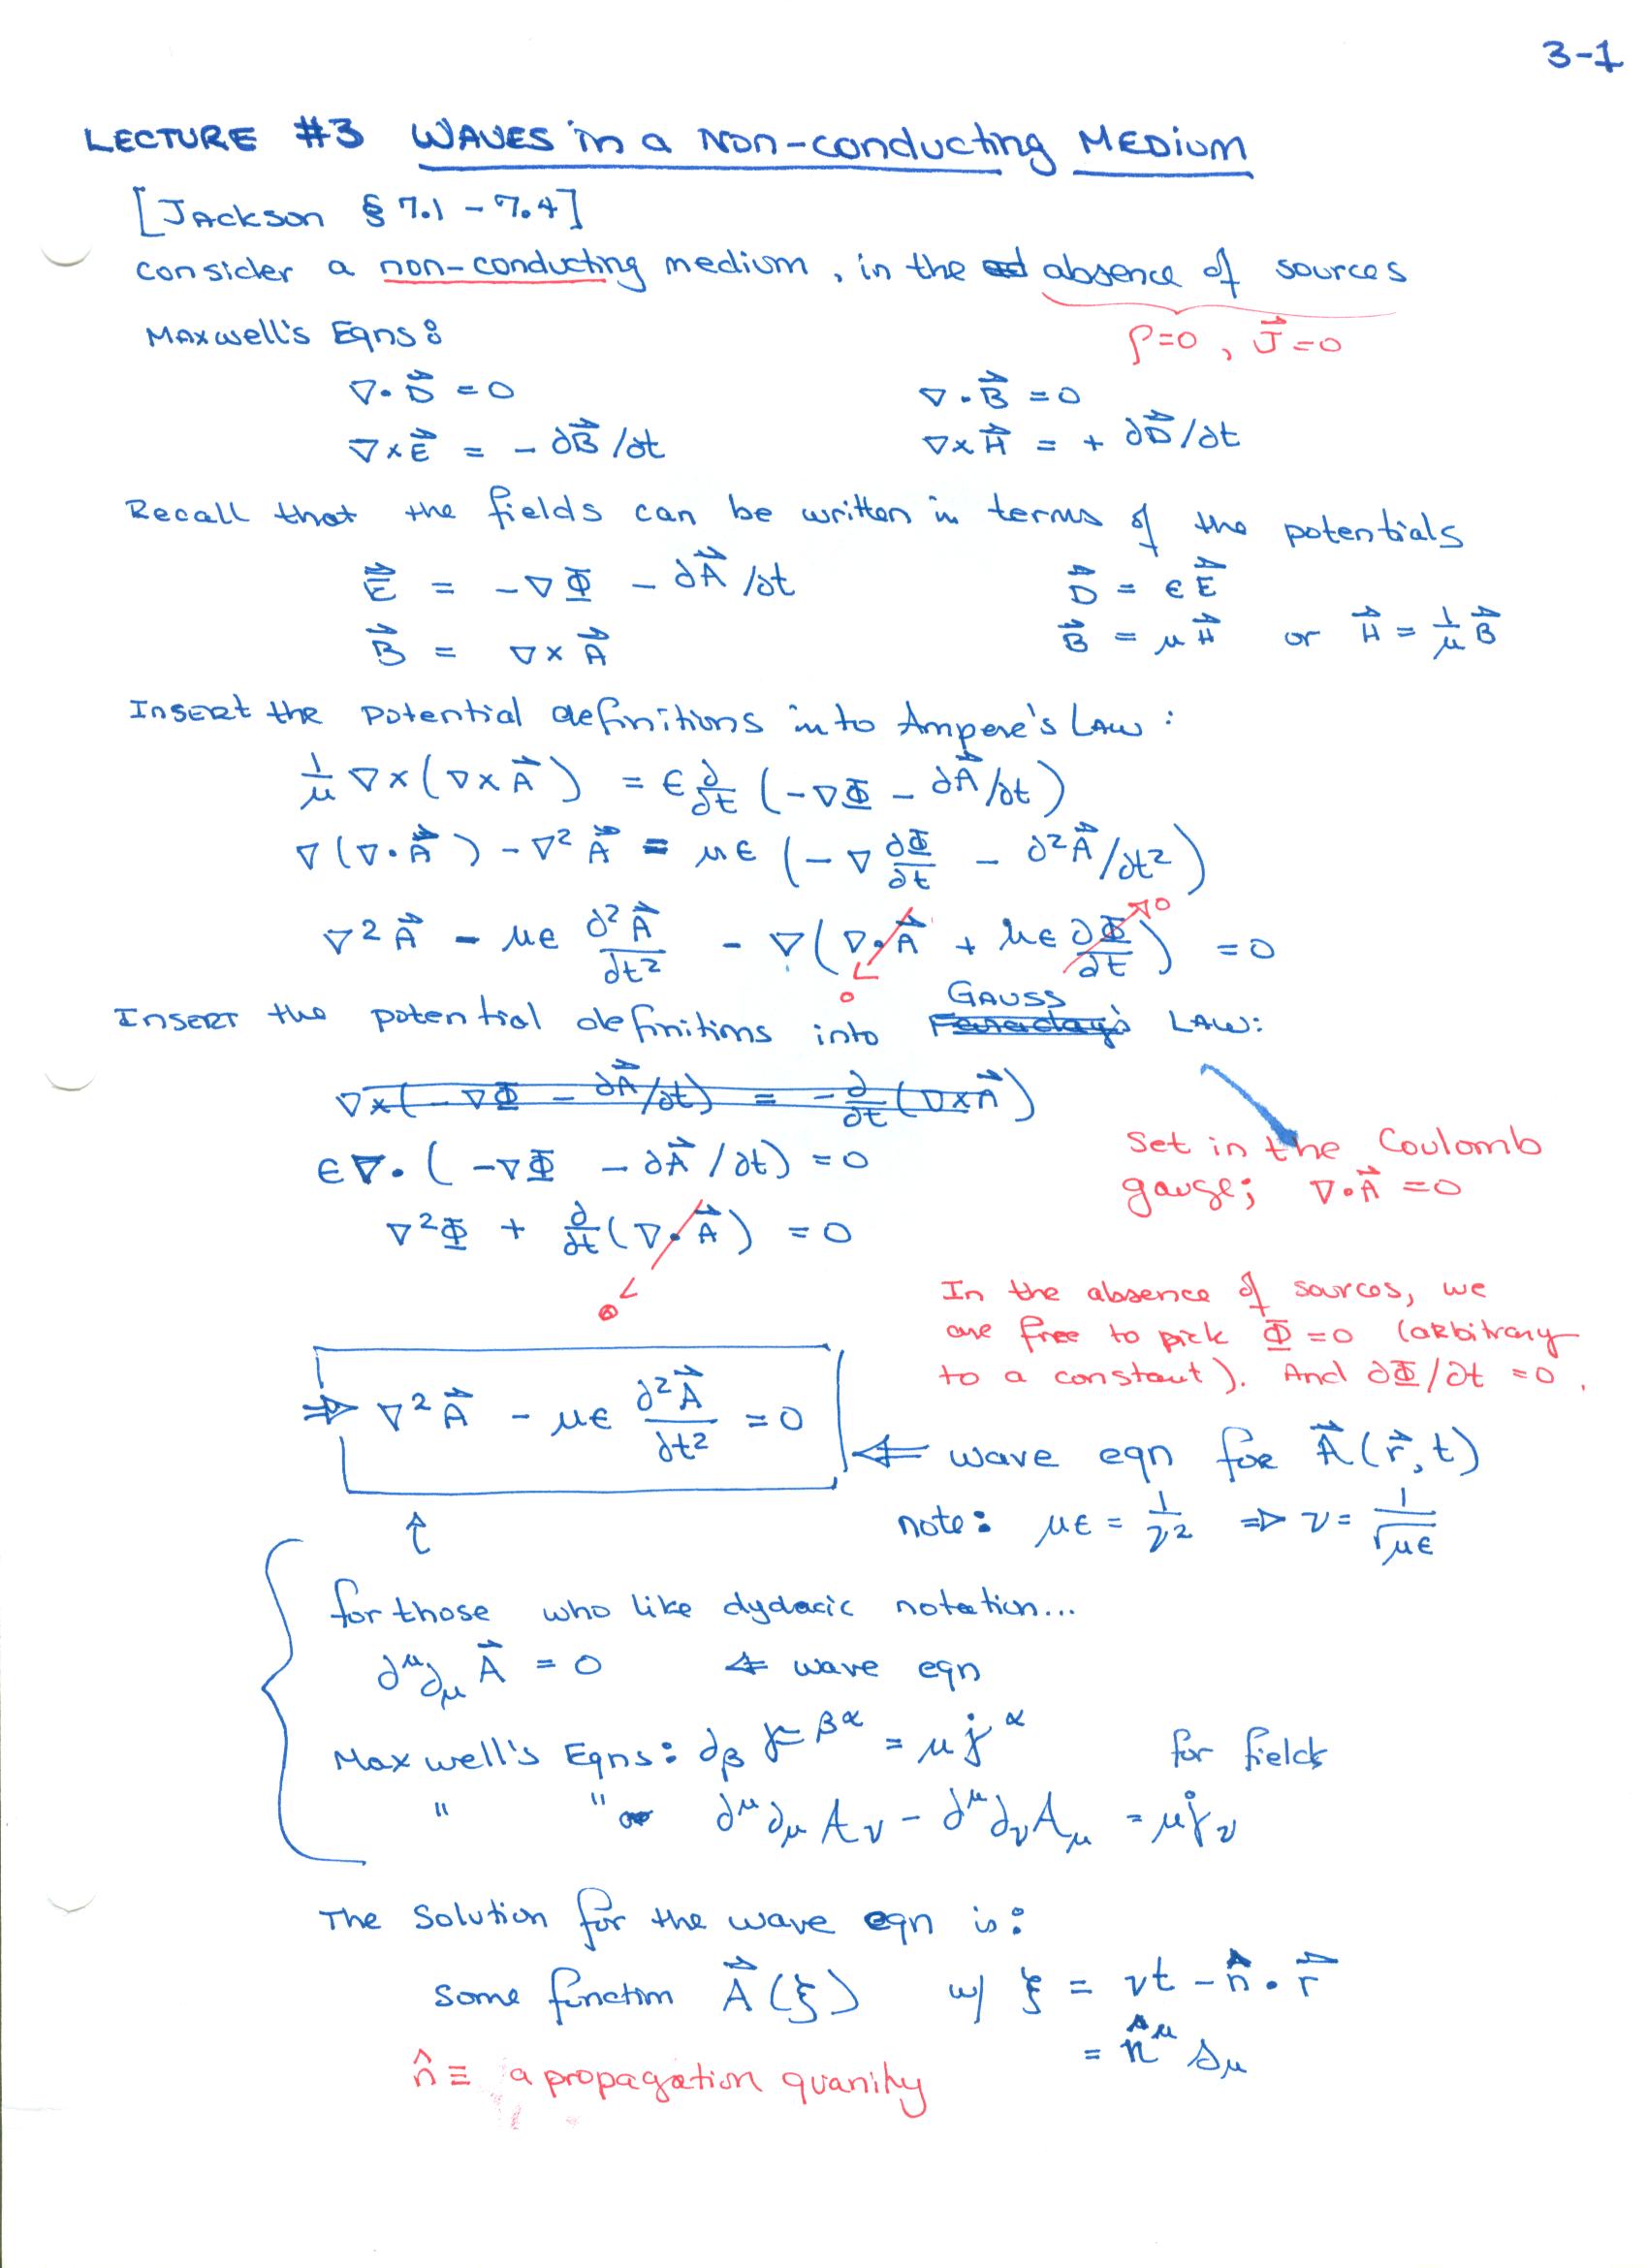 3-1
LECTURE #3 WAVES in a Non-conducting MEDIUM
[JAckson § 7.1 - 7.4]
Consider a non-conducting medium, in the absence of sources
ρ=0, J⃗=0
Maxwell's Eqns:
∇·D⃗ = 0    ∇·B⃗ = 0
∇×E⃗ = - ∂B⃗/∂t    ∇×H⃗ = + ∂D⃗/∂t
Recall that the fields can be written in terms of the potentials
E⃗ = -∇Φ - ∂A⃗/∂t    D⃗ = ϵE⃗
B⃗ = ∇×A⃗    B⃗ = μH⃗ or H⃗ = 1/μ B⃗
Insert the potential definitions into Ampere's Law:
1/μ ∇×(∇×A⃗) = ϵ ∂/∂t (-∇Φ - ∂A⃗/∂t)
∇(∇·A⃗) - ∇²A⃗ = μϵ (-∇ ∂Φ/∂t - ∂²A⃗/∂t²)
∇²A⃗ - μϵ ∂²A⃗/∂t² - ∇(∇·A⃗ + μϵ ∂Φ/∂t) = 0
0
0
Insert the potential definitions into Faraday's GAUSS LAW:
∇×(-∇Φ - ∂A⃗/∂t) = -∂/∂t (∇×A⃗)
ϵ∇·(-∇Φ - ∂A⃗/∂t) = 0
Set in the Coulomb
gauge; ∇·A⃗ = 0
∇²Φ + ∂/∂t (∇·A⃗) = 0
0
In the absence of sources, we
are free to pick Φ=0 (arbitrary
to a constant). And ∂Φ/∂t = 0.
⇒ ∇²A⃗ - μϵ ∂²A⃗/∂t² = 0
⇐ wave eqn for A⃗(r⃗,t)
note: μϵ = 1/v² ⇒ v = 1/√μϵ
for those who like dydacic notation...
∂^μ∂_μ A⃗ = 0 ⇐ wave eqn
Maxwell's Eqns: ∂_β F^βα = μ j^α for fields
" " ∂^μ∂_μ A_ν - ∂^μ∂_ν A_μ = μ j_ν
The Solution for the wave eqn is:
some function A⃗(ξ) w/ ξ = vt - n̂·r⃗
= n̂^μ s_μ
n̂ ≡ a propagation quanity